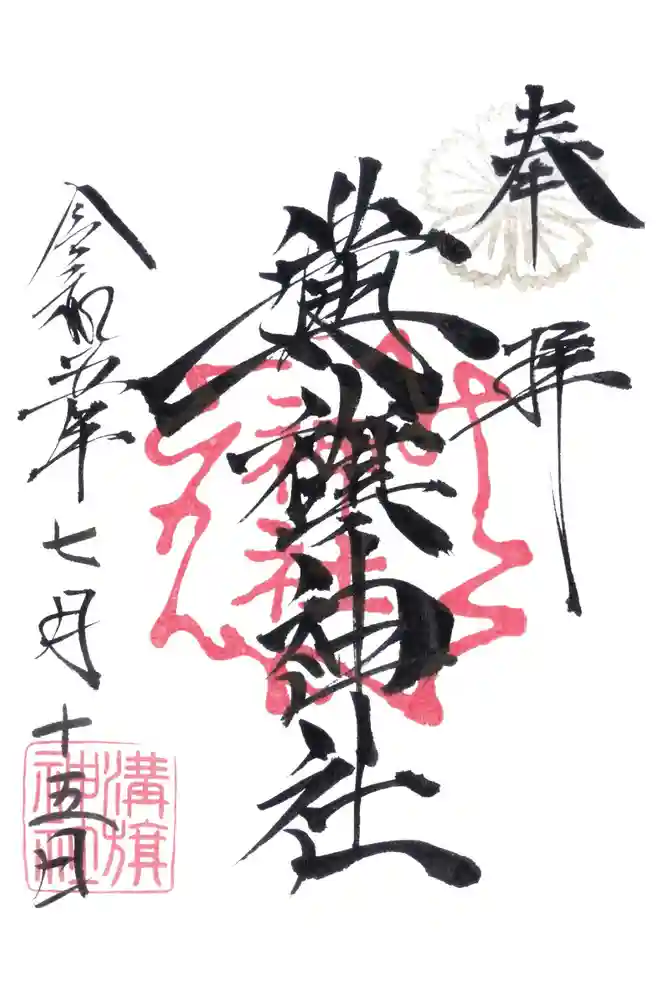 奉拝
溝旗神社
神社
令和五年七月十五日
溝旗
神社